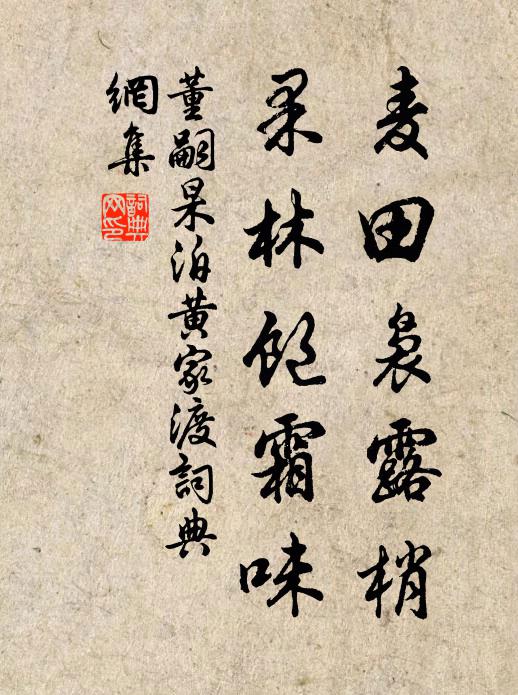 麦田裊露梢
果林飽霜味
董嗣杲泊黄家渡詞典
網集
詞典網印